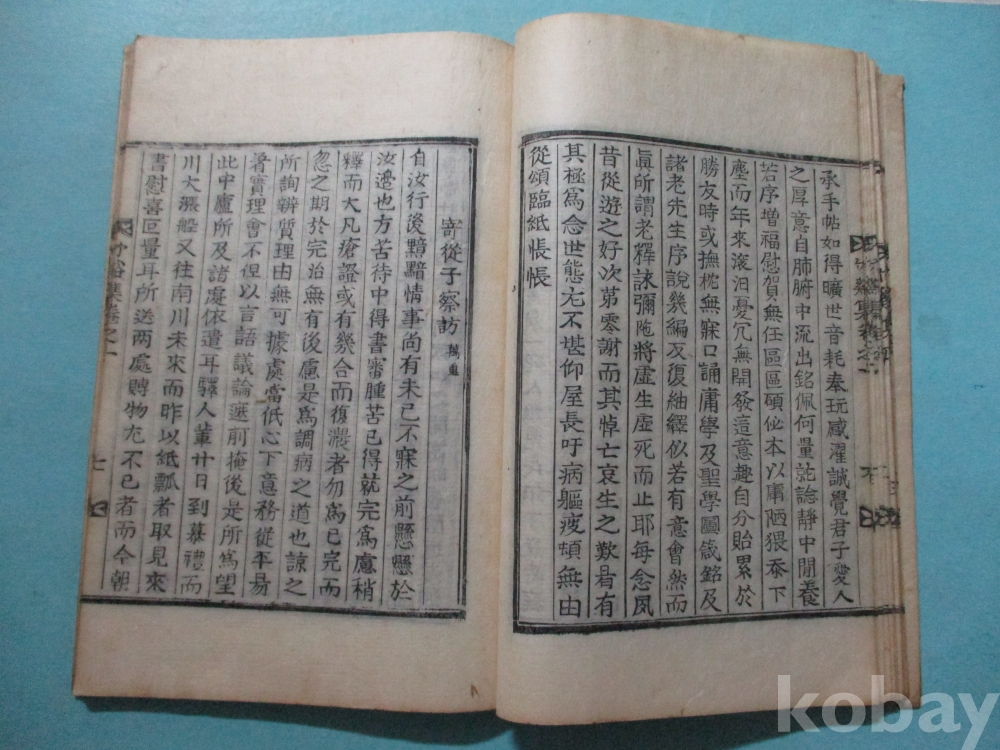 承手帖如得曠世音耗奉玩感濯誠覺君子愛人
之厚意自肺腑中流出銘佩何量就諗靜中閒養
若序增福慰賀無任區區碩佖本以庸陋猥忝下
塵而年來滚汨憂冗無開發這意趣自分貽累於
勝友時或撫枕無寐口誦庸學及聖學圖箴銘及
諸老先生序說幾編反復紬繹似若有意會然而
眞所謂老釋誦彌陁將虛生虛死而止耶每念夙
昔從遊之好次第零謝而其悼亡哀生之歎曷有
其極爲念世態尤不堪仰屋長吁病軀疲頓無由
從頌臨紙悵悵
寄從子察訪 萬重
自汝行後黯黯情事尚有未已不寐之前懸懸於
汝邊也方苦待中得書審腫苦已得就完爲慮稍
釋而大凡瘡證或有幾合而復濃者勿爲已完而
忽之期於完治無有後慮是爲調病之道也諒之
所詢辨質理由無可據處當低心下意務從平易
着實理會不但以言語議論遮前掩後是所爲望
此中廬所及諸處依遣耳驛人輩廿日到慕禮而
川大漲般又往南川未來而昨以紙瓢者取見來
書慰喜叵量耳所送兩處賻物尤不已者而今朝
集卷之一
七
kobay